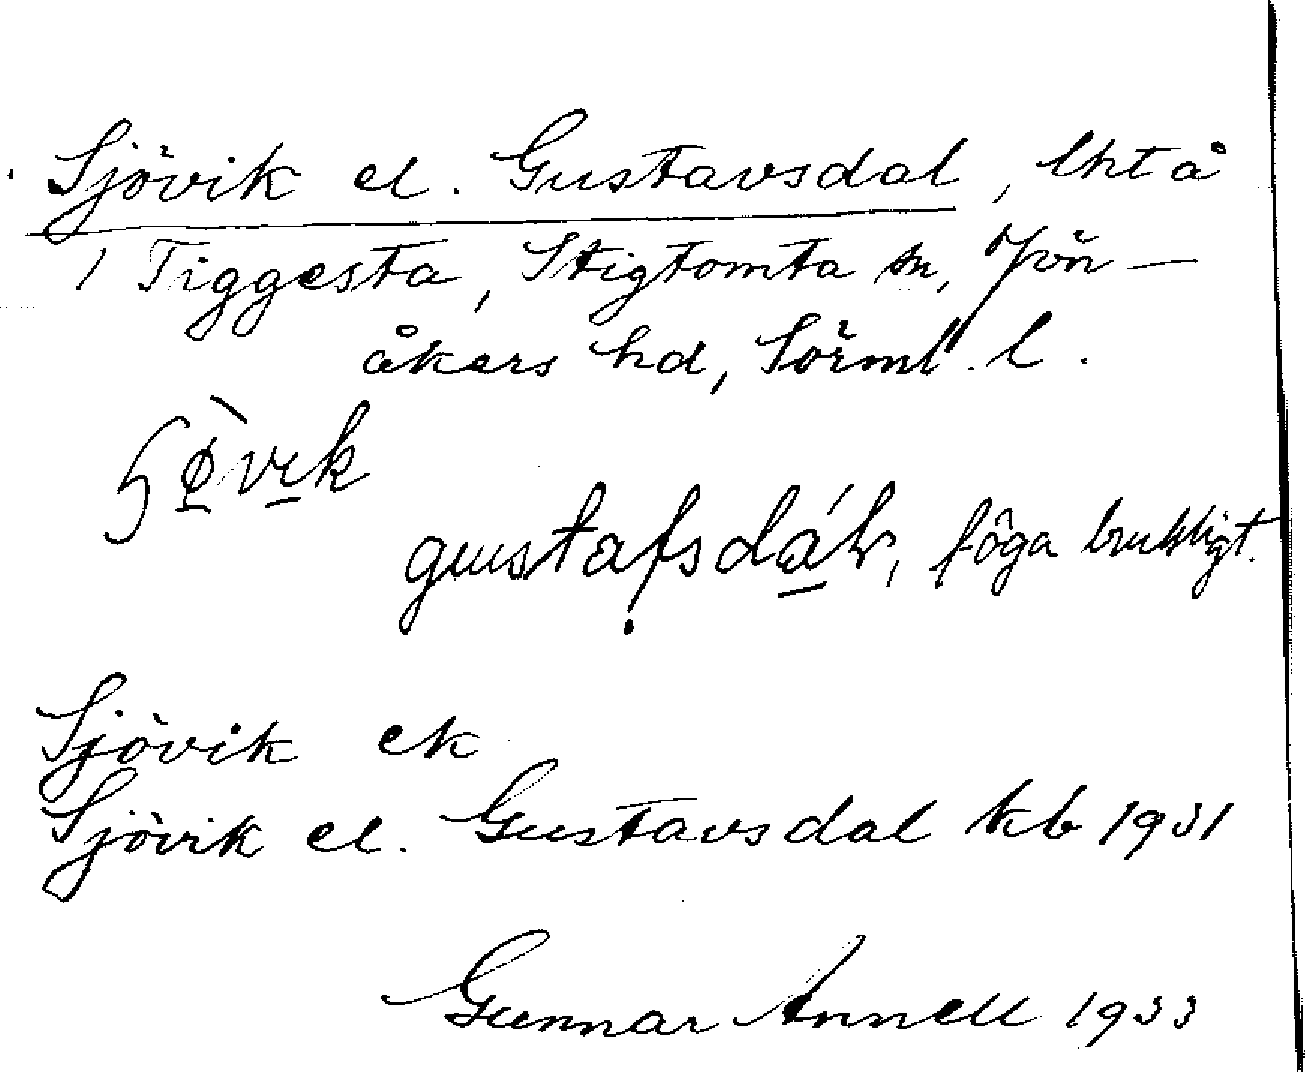 Sjövik el. Gustavsdal, lht å
1 Tiggesta, Stigtomta sn, Jön-
åkers hd, Sörml. l.
ʃø̀vik
gustafsdál, föga brukligt.
Sjövik ek
Sjövik el. Gustavsdal kb 1931
Gunnar Annell 1933